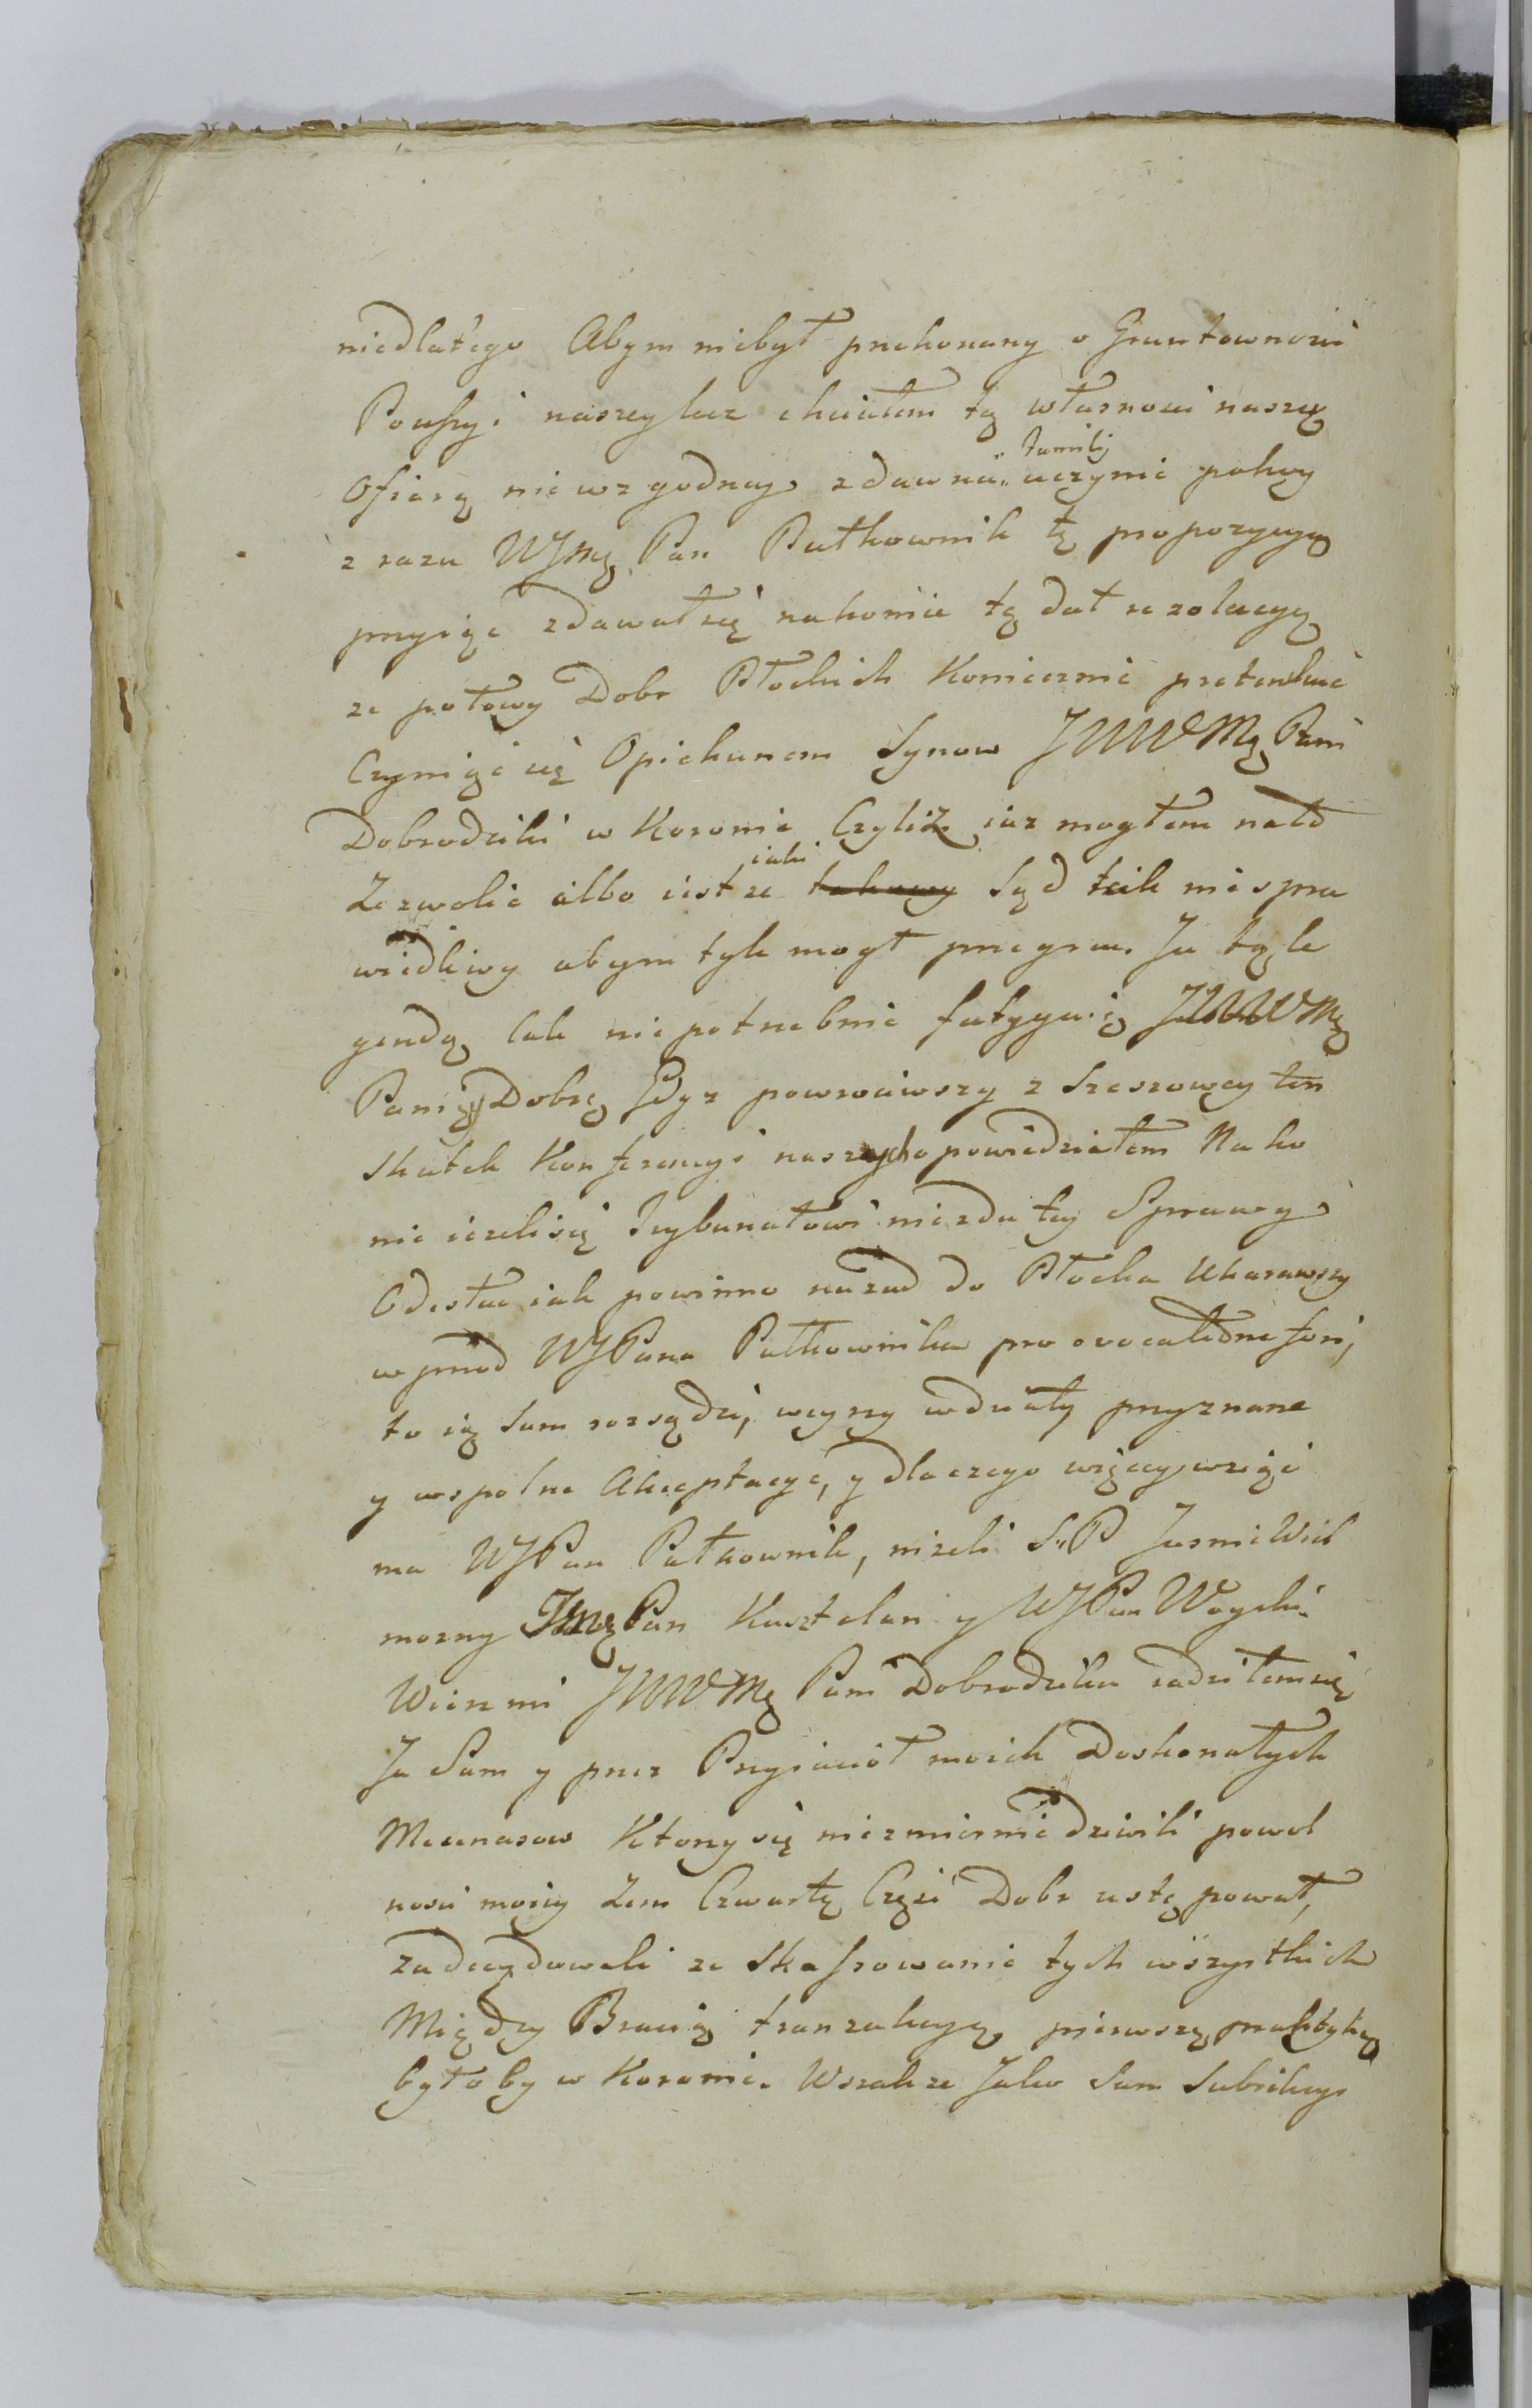 niedlatego Abym niebył przekonany o Gruntownosci
Possessyi naszey lecz chciałem tę własnosci naszey
Ofiarą niewzgodney zdawna familij uczynic pokoy
z razu WJMę Pan Pułkownik tę propozycyą
przyiąc zdawał się nakoniec tę dał rezolucyą
ze połowy Dobr Płockich Koniecznie pretenduie
Czyniąc się Opiekunem Synow JWWMę Pani
Dobrodziki w Koronie Czyliz iuz mogłem na to
Zezwolic albo iest ze iaki takowy Sąd tak niespra
wiedliwy abym tyle mogł przegrac. Ja tą le
gendą tak niepotrzebnie fatyguię JWWMę
Panią Dobrę Gdyz powrociwszy z Szeszowey ten
Skutek Konferencyi naszych opowiedziałem Nako
niec iezeli się Trybunałowi niezda tey Sprawy
Odesłac iak powinno nazad do Płocka Ukarawszy
wprzod WJPana Pułkownika pro evocatione fori,
to ią Sam rozsądzi, weyrzy w działy przyznane
y wspolne Akceptacye, y dla czego więcey wziąc
ma WJPan Pułkownik, nizeli S.P Jasnie Wiel
mozny JMę Pan Kasztelan y WJPan Woyski
Wierz mi JWWMę Pani Dobrodzika radziłem się
Ja Sam y przez Przyiacioł moich Doskonałych
Mecenasow Ktorzy się niezmiernie dziwili powol
nosci moiey Zem Czwartą Częsc Dobr ustępował,
zadecydowali ze Skassowanie tych wszystkich
Między Bracią tranzakcyą, pierwszą praktyką
byłoby w Koronie. Wszakze Jako Sam Subsilcyi